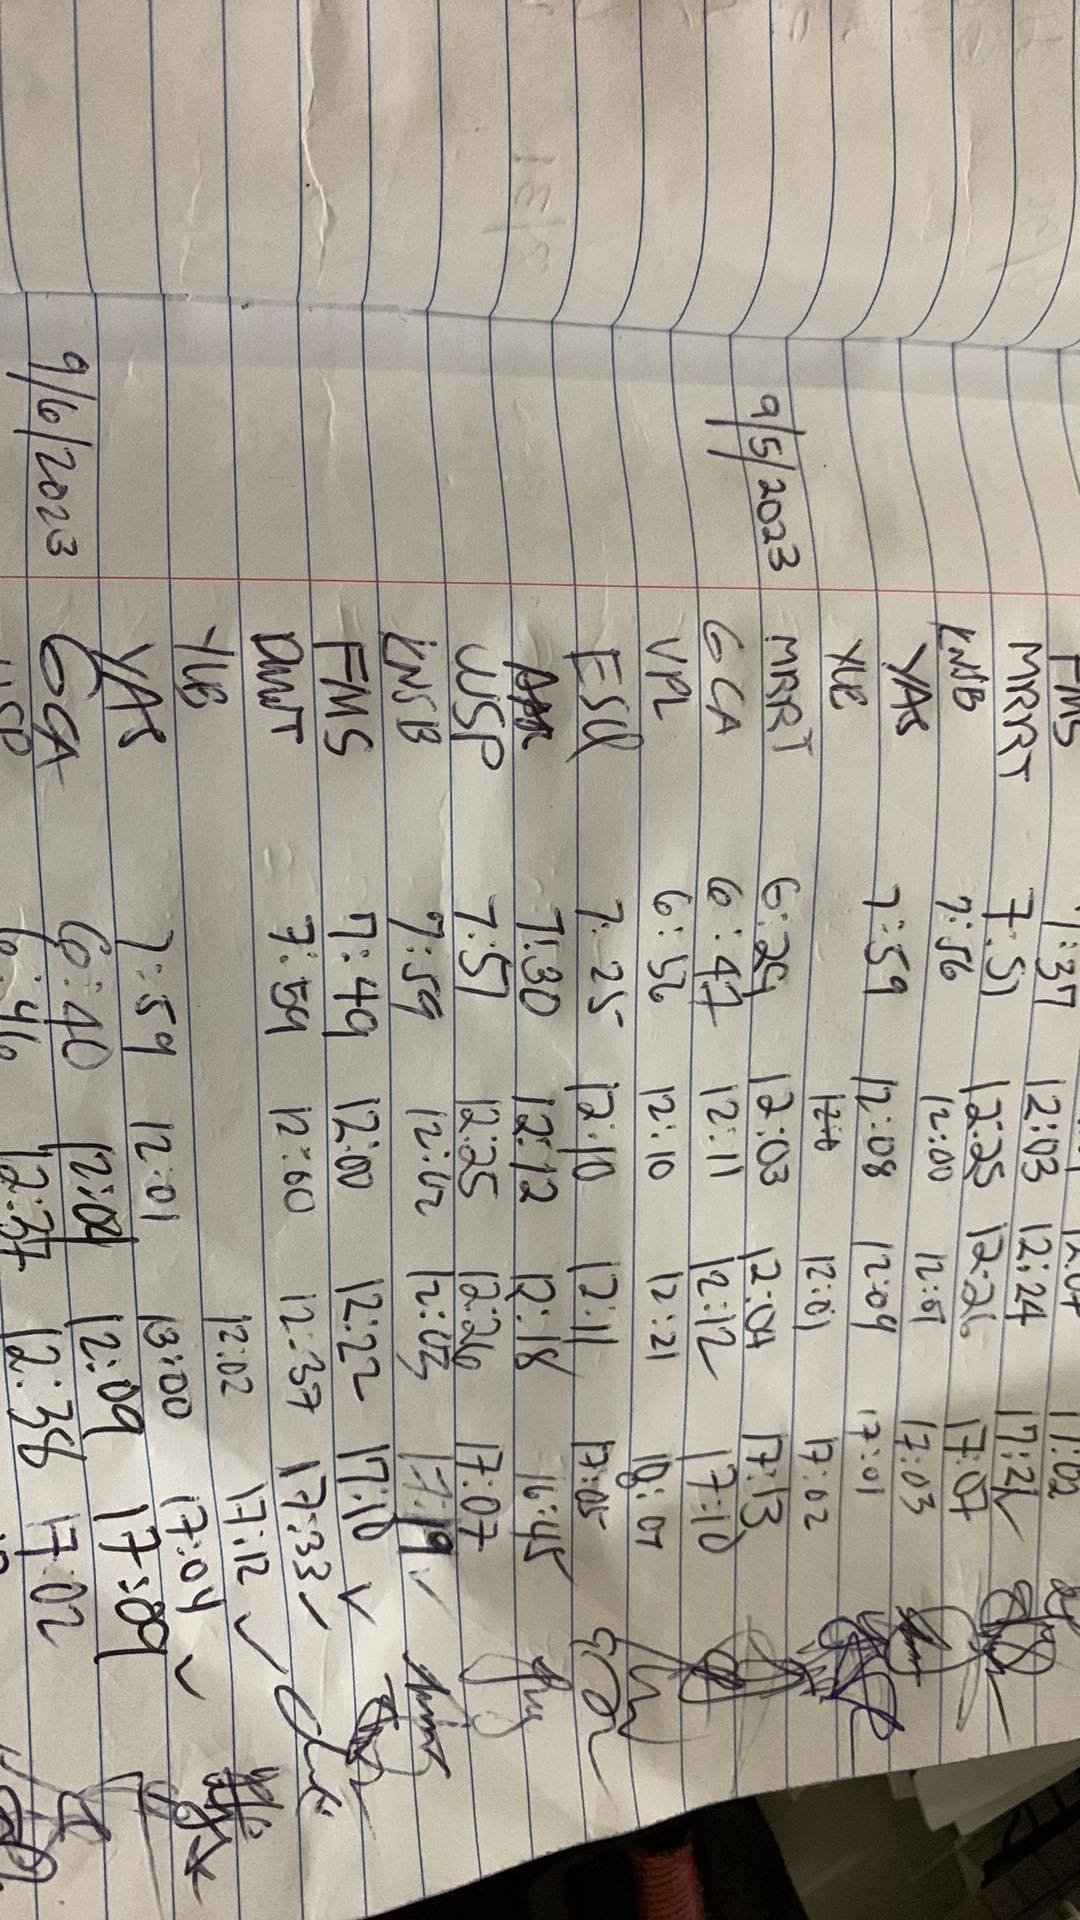 FMS 7:37 12:03 12:04 17:02
MRRT 7:51 12:03 12:24 17:21
KNB 7:56 12:25 12:26 17:07
YAS 7:59 12:00 12:01 17:03
YLB 12:08 12:09 17:01
9/5/2023 MRRT 6:29 12:0 12:01 17:02
GCA 6:47 12:03 12:04 17:13
VPL 6:52 12:11 12:12 17:10
ESU 7:25 12:10 12:21 18:07
7:30 12:10 12:11 17:05
WSP 7:57 12:12 12:18 16:45
KNSB 7:59 12:25 12:26 17:07
FMS 7:49 12:02 12:03 17:19
DMWT 7:59 12:00 12:22 17:10
YLB 12:00 12:37 17:33
YAS 7:59 12:02 17:12
9/6/2023 GCA 6:40 12:01 13:00 17:04
WSP 6:46 12:09 12:09 17:09
12:37 12:38 17:02